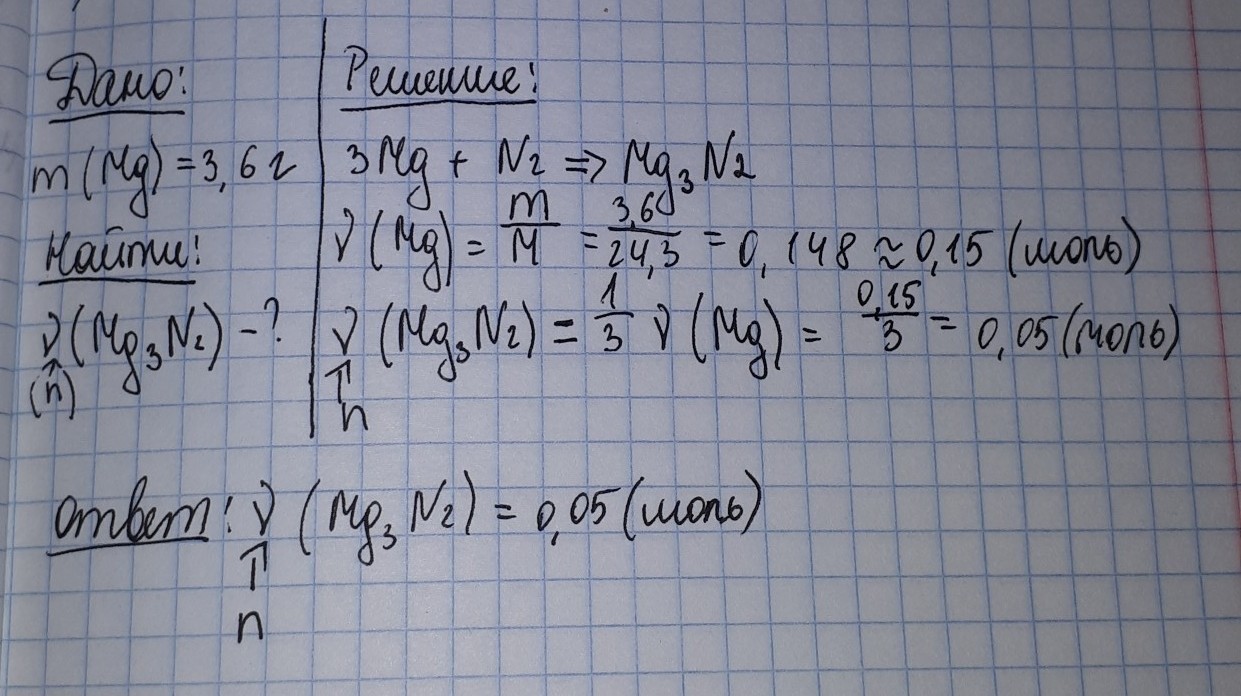 Дано:
m(Mg) = 3,6 г
Найти:
ν(Mg₃N₂) - ?
(n)
Решение:
3Mg + N₂ => Mg₃N₂
ν(Mg) = m/M = 3,6/24,3 = 0,148 ≈ 0,15 (моль)
ν(Mg₃N₂) = 1/3 ν(Mg) = 0,15/3 = 0,05 (моль)
↑
n
Ответ: ν(Mg₃N₂) = 0,05 (моль)
↑
n